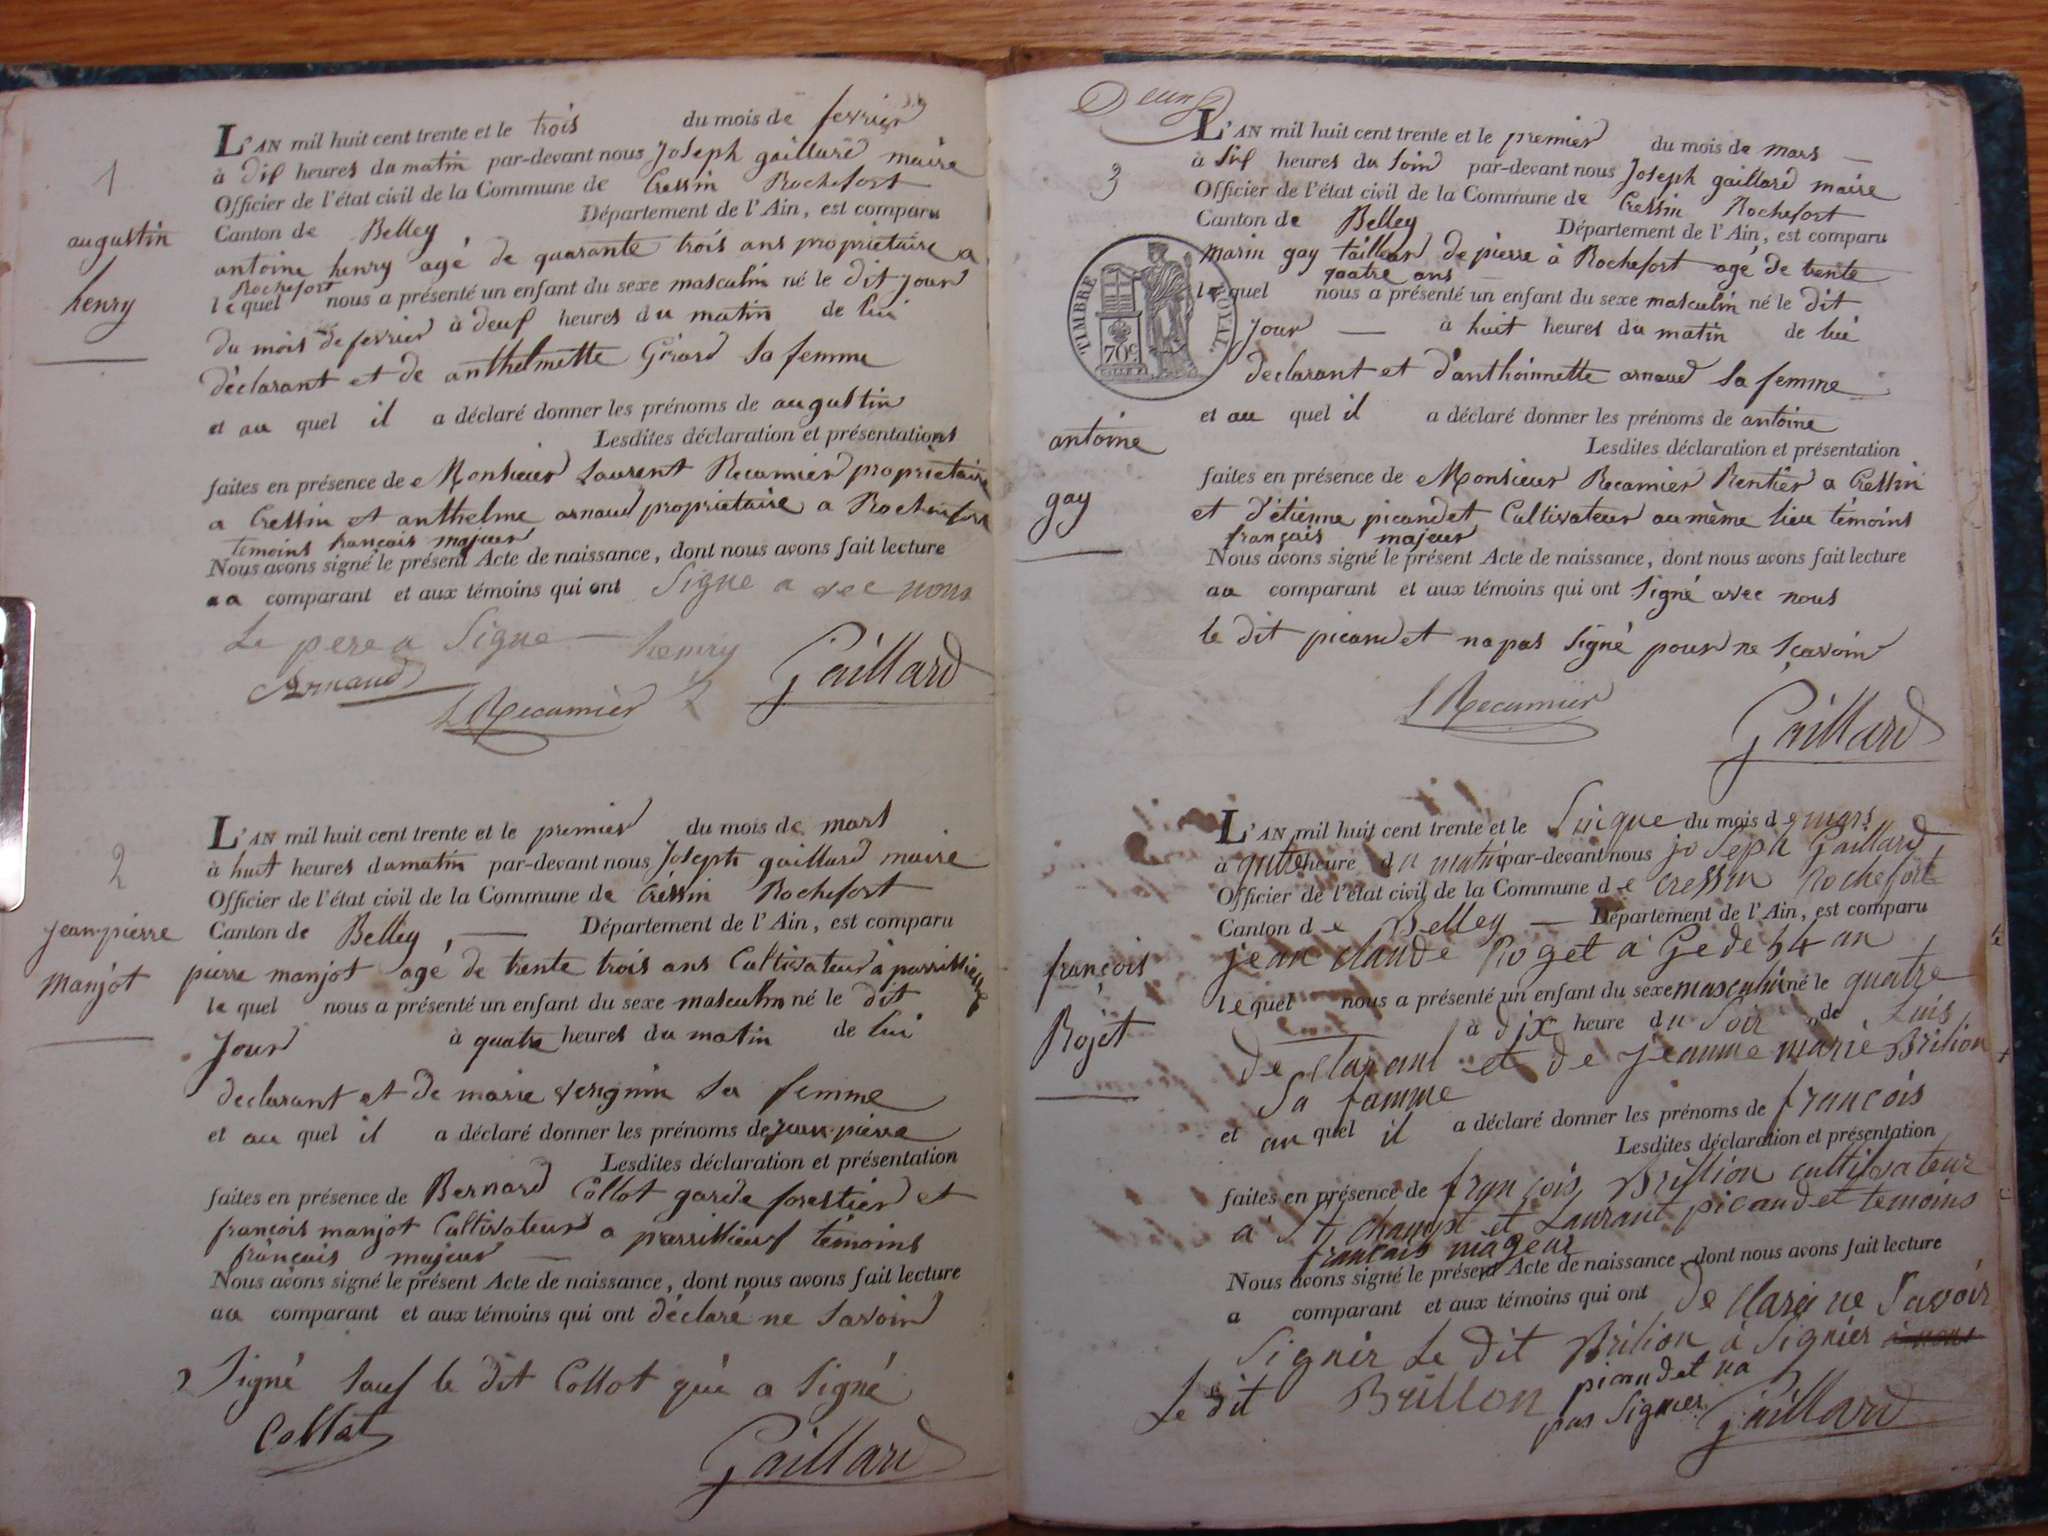 1
augustin
henry
L'AN mil huit cent trente et le trois du mois de fevrier
à dix heures du matin par-devant nous Joseph gaillard maire
Officier de l'état civil de la Commune de Cressin Rochefort
Canton de Belley Département de l'Ain, est comparu
antoine henry agé de quarante trois ans propriétaire a
Rochefort
lequel nous a présenté un enfant du sexe masculin né le dit jour
du mois de fevrier à deux heures du matin de lui
déclarant et de anthelmette Girard sa femme
et au quel il a déclaré donner les prénoms de augustin
Lesdites déclaration et présentations
faites en présence de Monsieur Laurent Recamier propriétaire
a Cressin et anthelme arnaud propriétaire a Rochefort
temoins français majeur
Nous avons signé le présent Acte de naissance, dont nous avons fait lecture
au comparant et aux témoins qui ont Signé avec nous
Le pere a Signe henry
Arnaud
L Recamier
Gaillard
2
jean pierre
manjot
L'AN mil huit cent trente et le premier du mois de mars
à huit heures du matin par-devant nous Joseph gaillard maire
Officier de l'état civil de la Commune de Cressin Rochefort
Canton de Belley, Département de l'Ain, est comparu
pierre manjot agé de trente trois ans Cultivateur à parrissieux
lequel nous a présenté un enfant du sexe masculin né le dit
jour à quatre heures du matin de lui
declarant et de marie sa femme
et au quel il a déclaré donner les prénoms de jean pierre
Lesdites déclaration et présentation
faites en présence de Bernard Collot garde forestier et
françois manjot Cultivateur a parrissieux témoins
français majeur
Nous avons signé le présent Acte de naissance, dont nous avons fait lecture
au comparant et aux témoins qui ont déclaré ne savoir
Signé sauf le dit Collot qui a Signé
Collot
Gaillard
Deux
3
antoine
gay
L'AN mil huit cent trente et le premier du mois de mars
à six heures du soir par-devant nous Joseph gaillard maire
Officier de l'état civil de la Commune de Cressin Rochefort
Canton de Belley Département de l'Ain, est comparu
marin gay tailleur de pierre à Rochefort agé de trente
quatre ans
lequel nous a présenté un enfant du sexe masculin né le dit
jour à huit heures du matin de lui
TIMBRE ROYAL
70c
declarant et d'anthoinnette arnaud sa femme
et au quel il a déclaré donner les prénoms de antoine
Lesdites déclaration et présentation
faites en présence de Monsieur Recamier Rentier a Cressin
et d'étienne picandet Cultivateur au même lieu témoins
français majeur
Nous avons signé le présent Acte de naissance, dont nous avons fait lecture
au comparant et aux témoins qui ont Signé avec nous
le dit picandet na pas Signé pour ne sçavoir
L Recamier
Gaillard
françois
Rojet
L'AN mil huit cent trente et le Sinque du mois de mars
à heure du matin par-devant nous joSeph Gaillard
Officier de l'état civil de la Commune de cressin Rochefort
Canton de Belley Département de l'Ain, est comparu
jean claude Roget a Ge de 54 an
lequel nous a présenté un enfant du sexe masculin né le quatre
à dix heure du Soir de Luis
de clarant et de jeanne marie Brilion
Sa famme
et au quel il a déclaré donner les prénoms de françois
Lesdites déclaration et présentation
faites en présence de françois Brillion cultivateur
a St champt et Laurant picandet temoins
francais mageur
Nous avons signé le présent Acte de naissance, dont nous avons fait lecture
a comparant et aux témoins qui ont de claré ne Savoir
Signér Le dit Brilion à Signier
Le dit Brillon picandet na
pas Signier
Gaillard